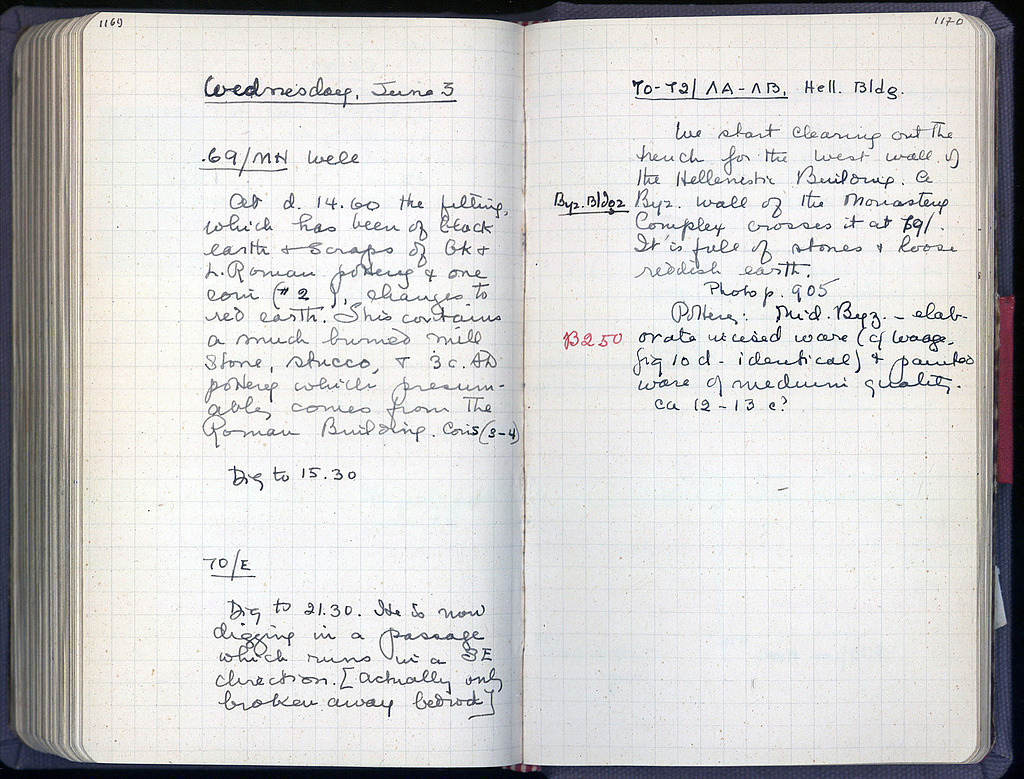 1169
Wednesday, June 3
.69/MH Well
At d. 14.60 the filling,
which has been of black
earth + scraps of Gk +
L. Roman pottery + one
coin (#2), changes to
red earth. This contains
a much burned mill
stone, stucco, + 3 c. AD
pottery which presum-
ably comes from the
Roman Building. Coins (3-4)
Dig to 15.30
70/E
Dig to 21.30. He is now
digging in a passage
which runs in a SE
direction. [actually only
broken away bedrock]
1170
70-72/ ΛA-ΛB, Hell. Bldg.
We start clearing out the
trench for the west wall of
the Hellenistic Building. A
Byz. Bldgs Byz. wall of the Monastery
Complex crosses it at 691.
It is full of stones + loose
reddish earth.
Photo p. 905
Pottery: Mid. Byz. - elab-
B250 orate incised ware (cf Waage.
fig 10 d - identical) + painted
ware of medium quality.
ca 12-13 c?